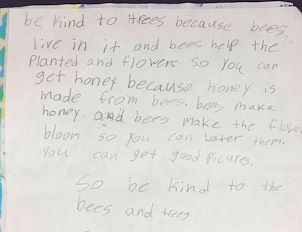 be kind to trees because bees
live in it and bees help the
Planted and flowers so you can
get honey because honey is
made from bees. bees make
honey and bees make the flower
bloom so you can water them.
you can get good picures.
So be kind to the
bees and trees